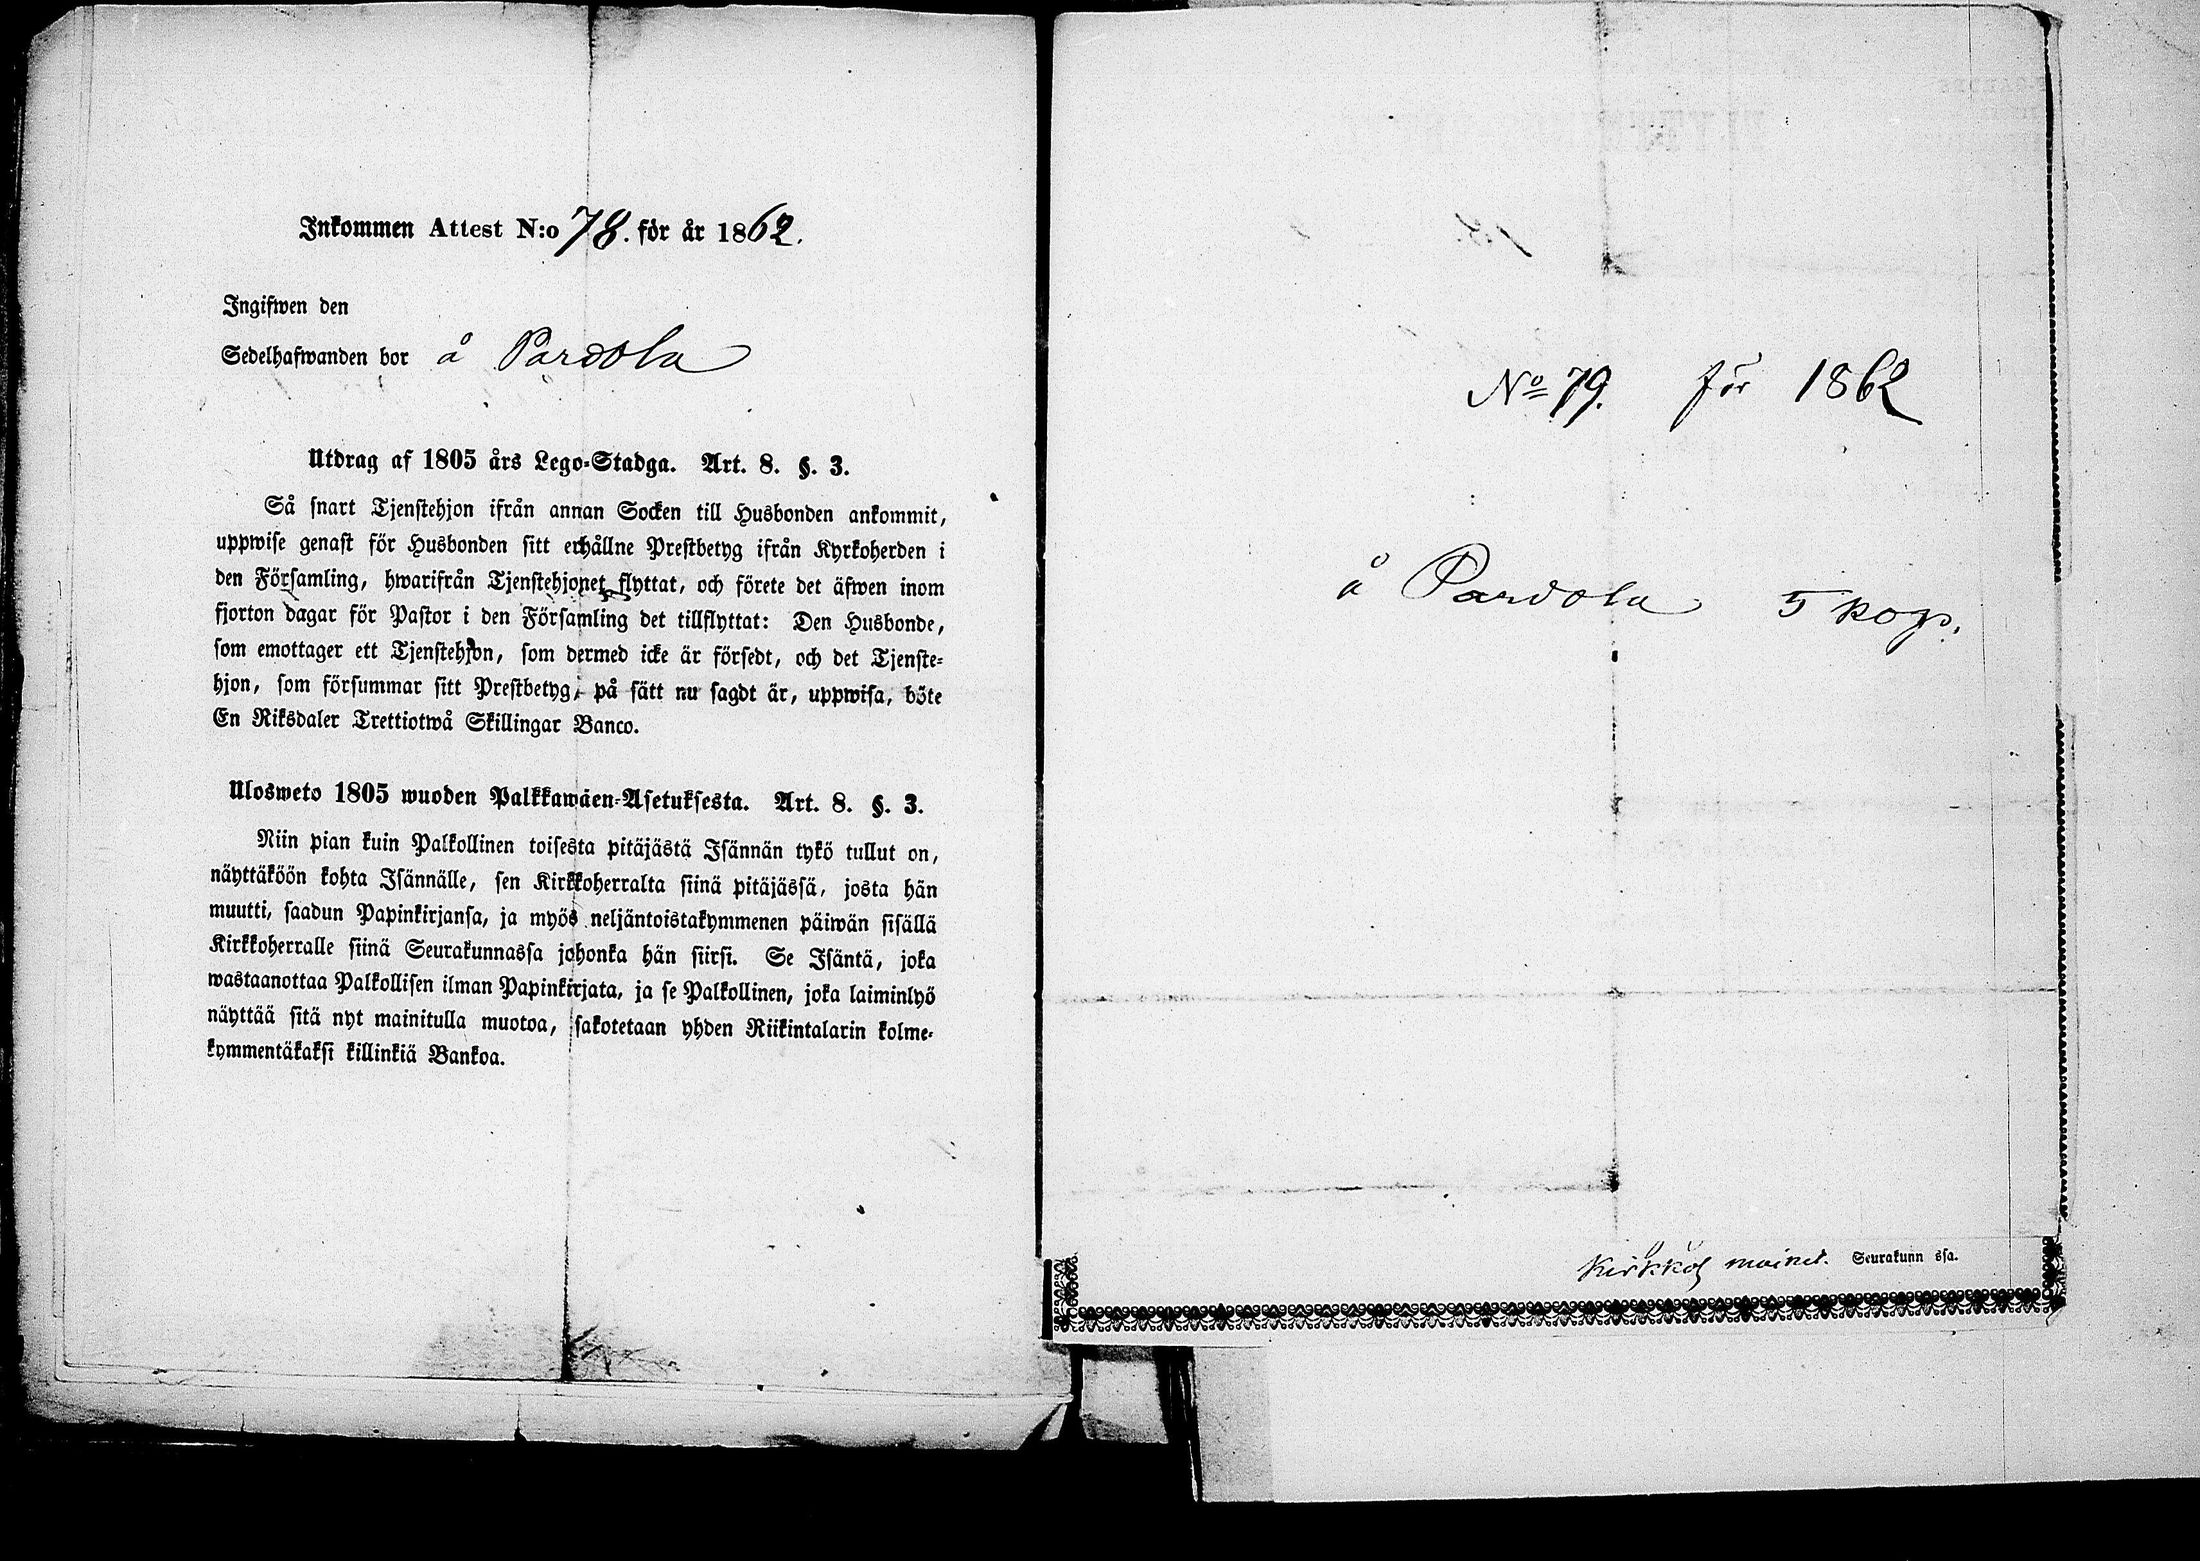 Inkommen Attest N:o 78. för år 1862.
Ingifwen den
Sedelhafwanden bor å Pardola
Utdrag af 1805 års Lego-Stadga. Art. 8. §. 3.
Så snart Tjenstehjon ifrån annan Socken till Husbonden ankommit,
uppwise genast för Husbonden sitt erhållne Prestbetyg ifrån Kyrkoherden i
den Församling, hwarifrån Tjenstehjonet flyttat, och förete det äfwen inom
fjorton dagar för Pastor i den Församling det tillflyttat: Den Husbonde,
som emottager ett Tjenstehjon, som dermed icke är försedt, och det Tjenste-
hjon, som försummar sitt Prestbetyg, på sätt nu sagdt är, uppwisa, böte
En Riksdaler Trettiotwå Skillingar Banco.
Ulosweto 1805 wuoden Palkkawäen-Asetuksesta. Art. 8. §. 3.
Niin pian kuin Palkollinen toisesta pitäjästä Isännän tykö tullut on,
näyttäköön kohta Isännälle, sen Kirkkoherralta siinä pitäjässä, josta hän
muutti, saadun Papinkirjansa, ja myös neljäntoistakymmenen päiwän sisällä
Kirkkoherralle siinä Seurakunnassa johonka hän siirsi. Se Isäntä, joka
wastaanottaa Palkollisen ilman Papinkirjata, ja se Palkollinen, joka laiminlyö
näyttää sitä nyt mainitulla muotoa, sakotetaan yhden Riikintalarin kolme-
kymmentäkaksi killinkiä Bankoa.
No 79. för 1862
å Pardola 5 kop.
mainit. Seurakunn ssa.